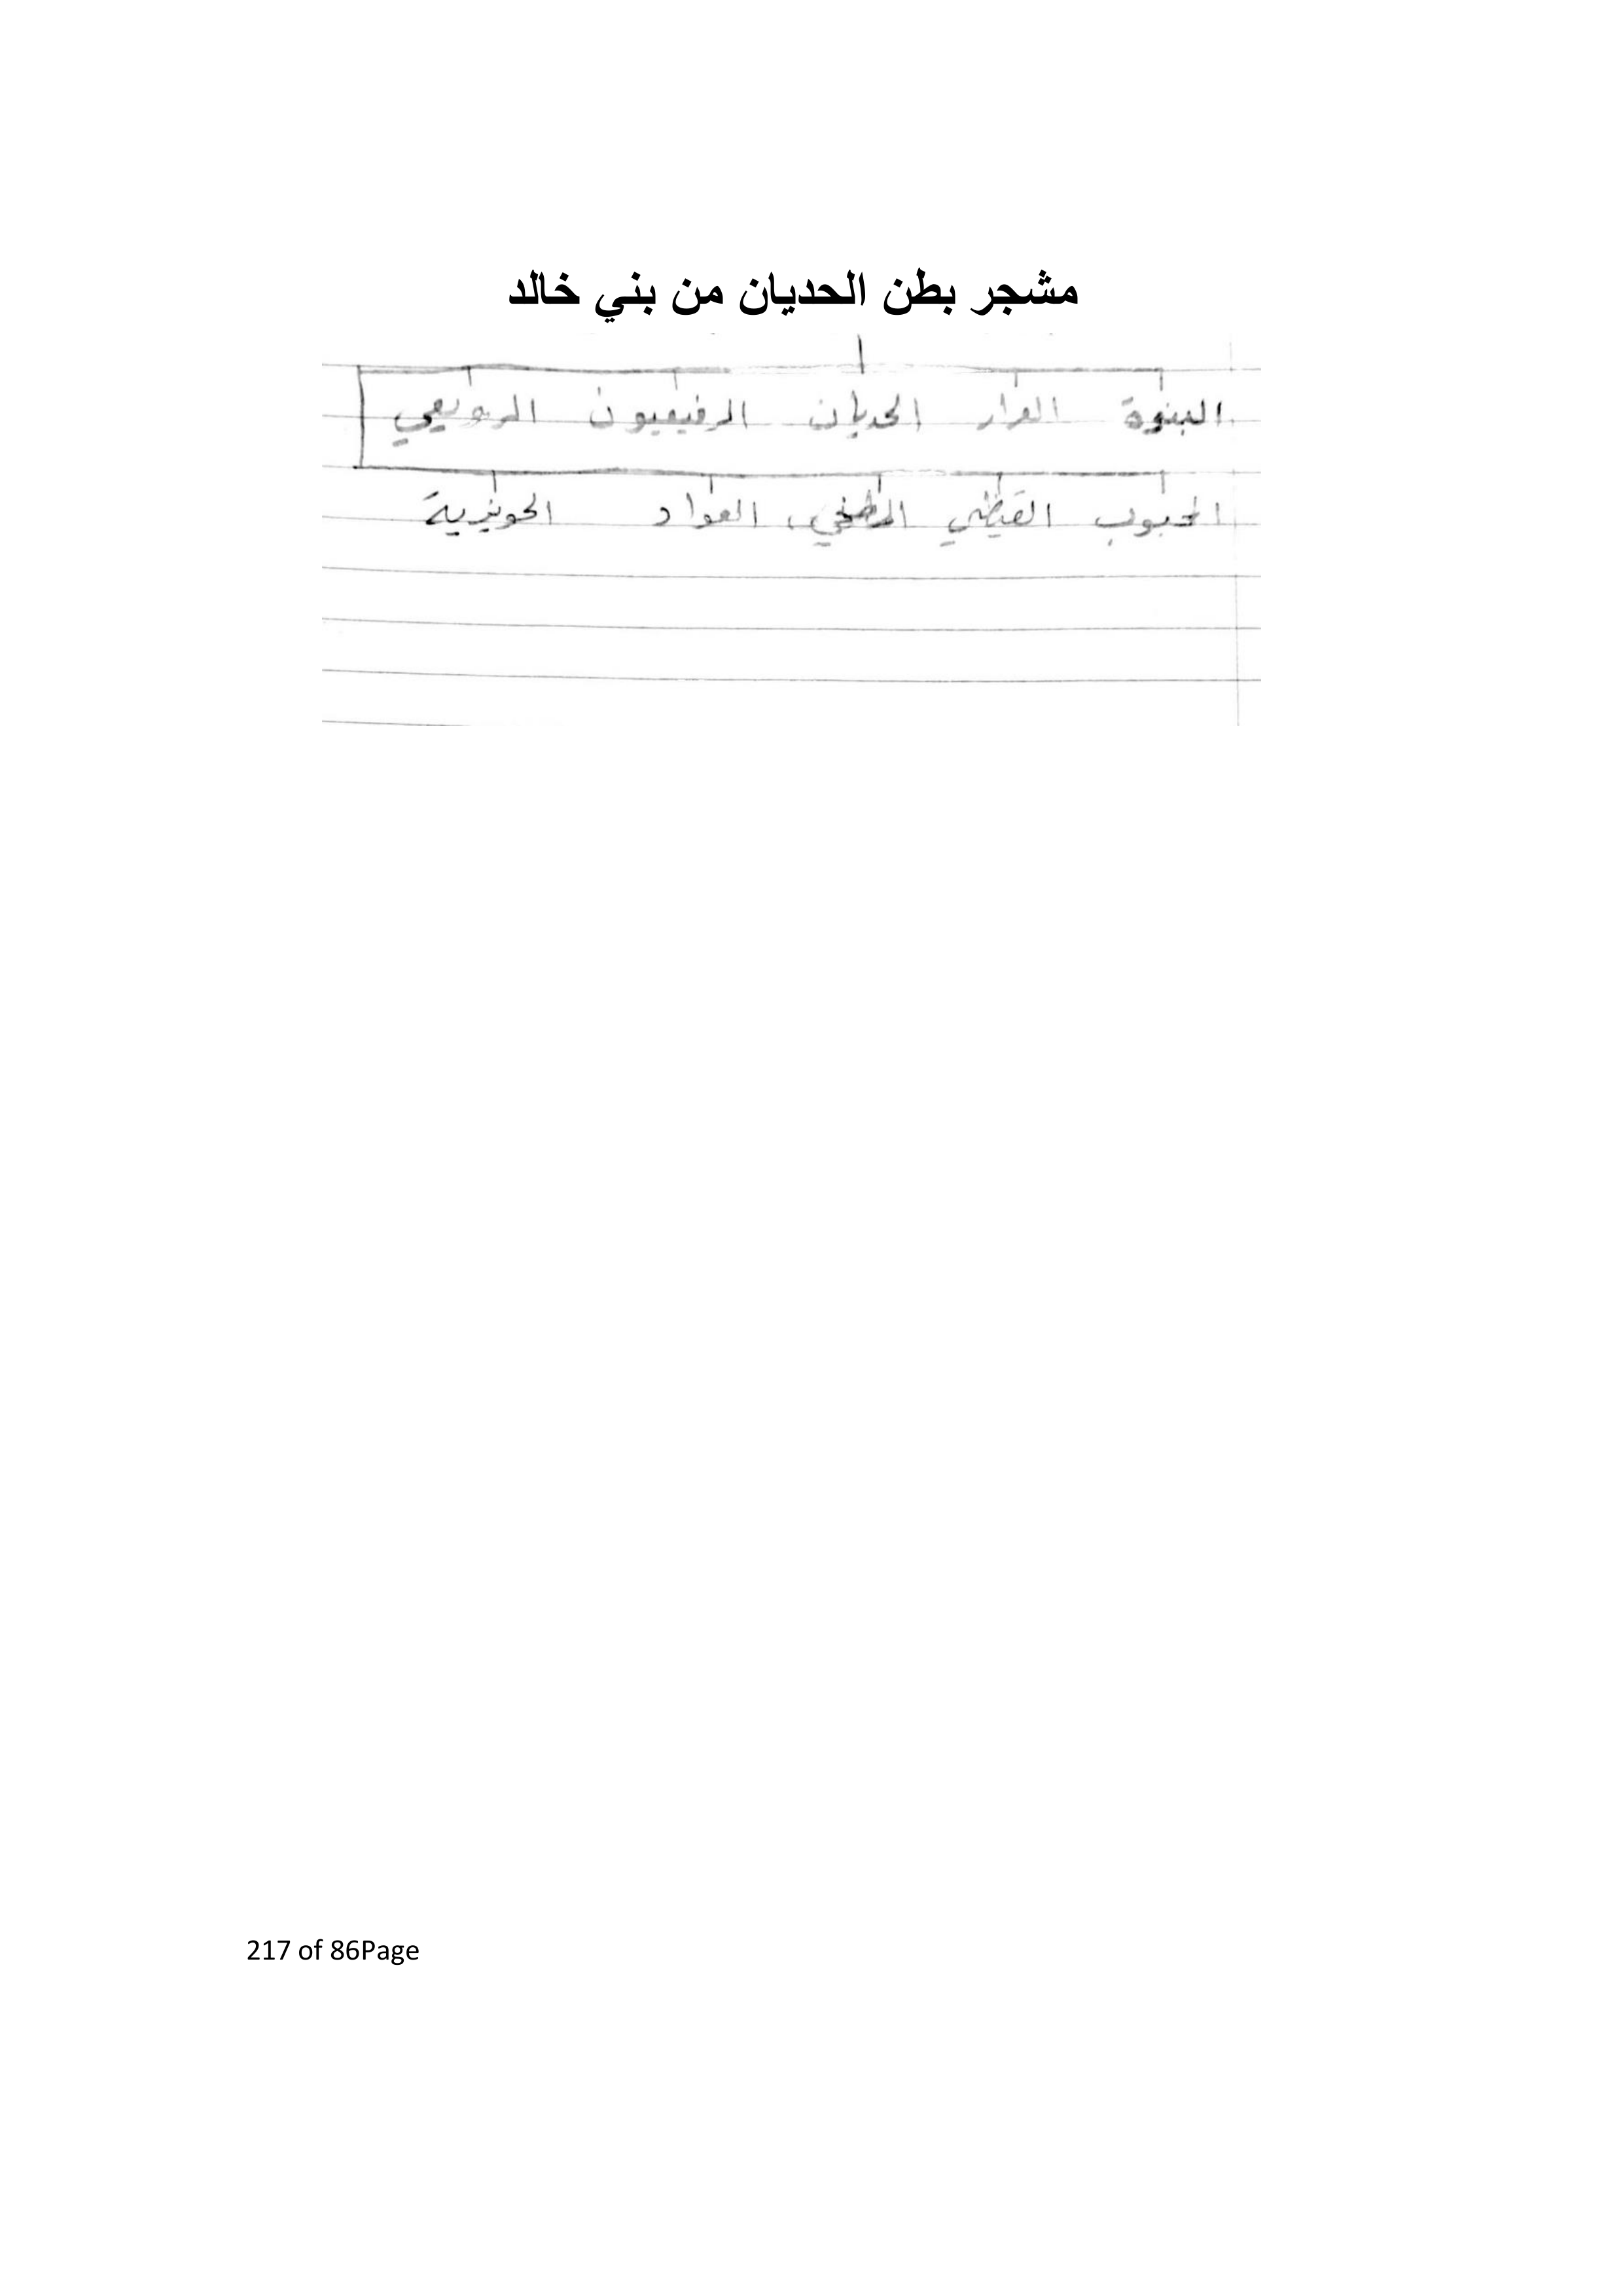 مشجر بطن الحديان من بني خالد
البنوة العرار الحديان الرفيعيون الرويعي
الحبوب القيظي العواد الحويزية
217 of 86Page